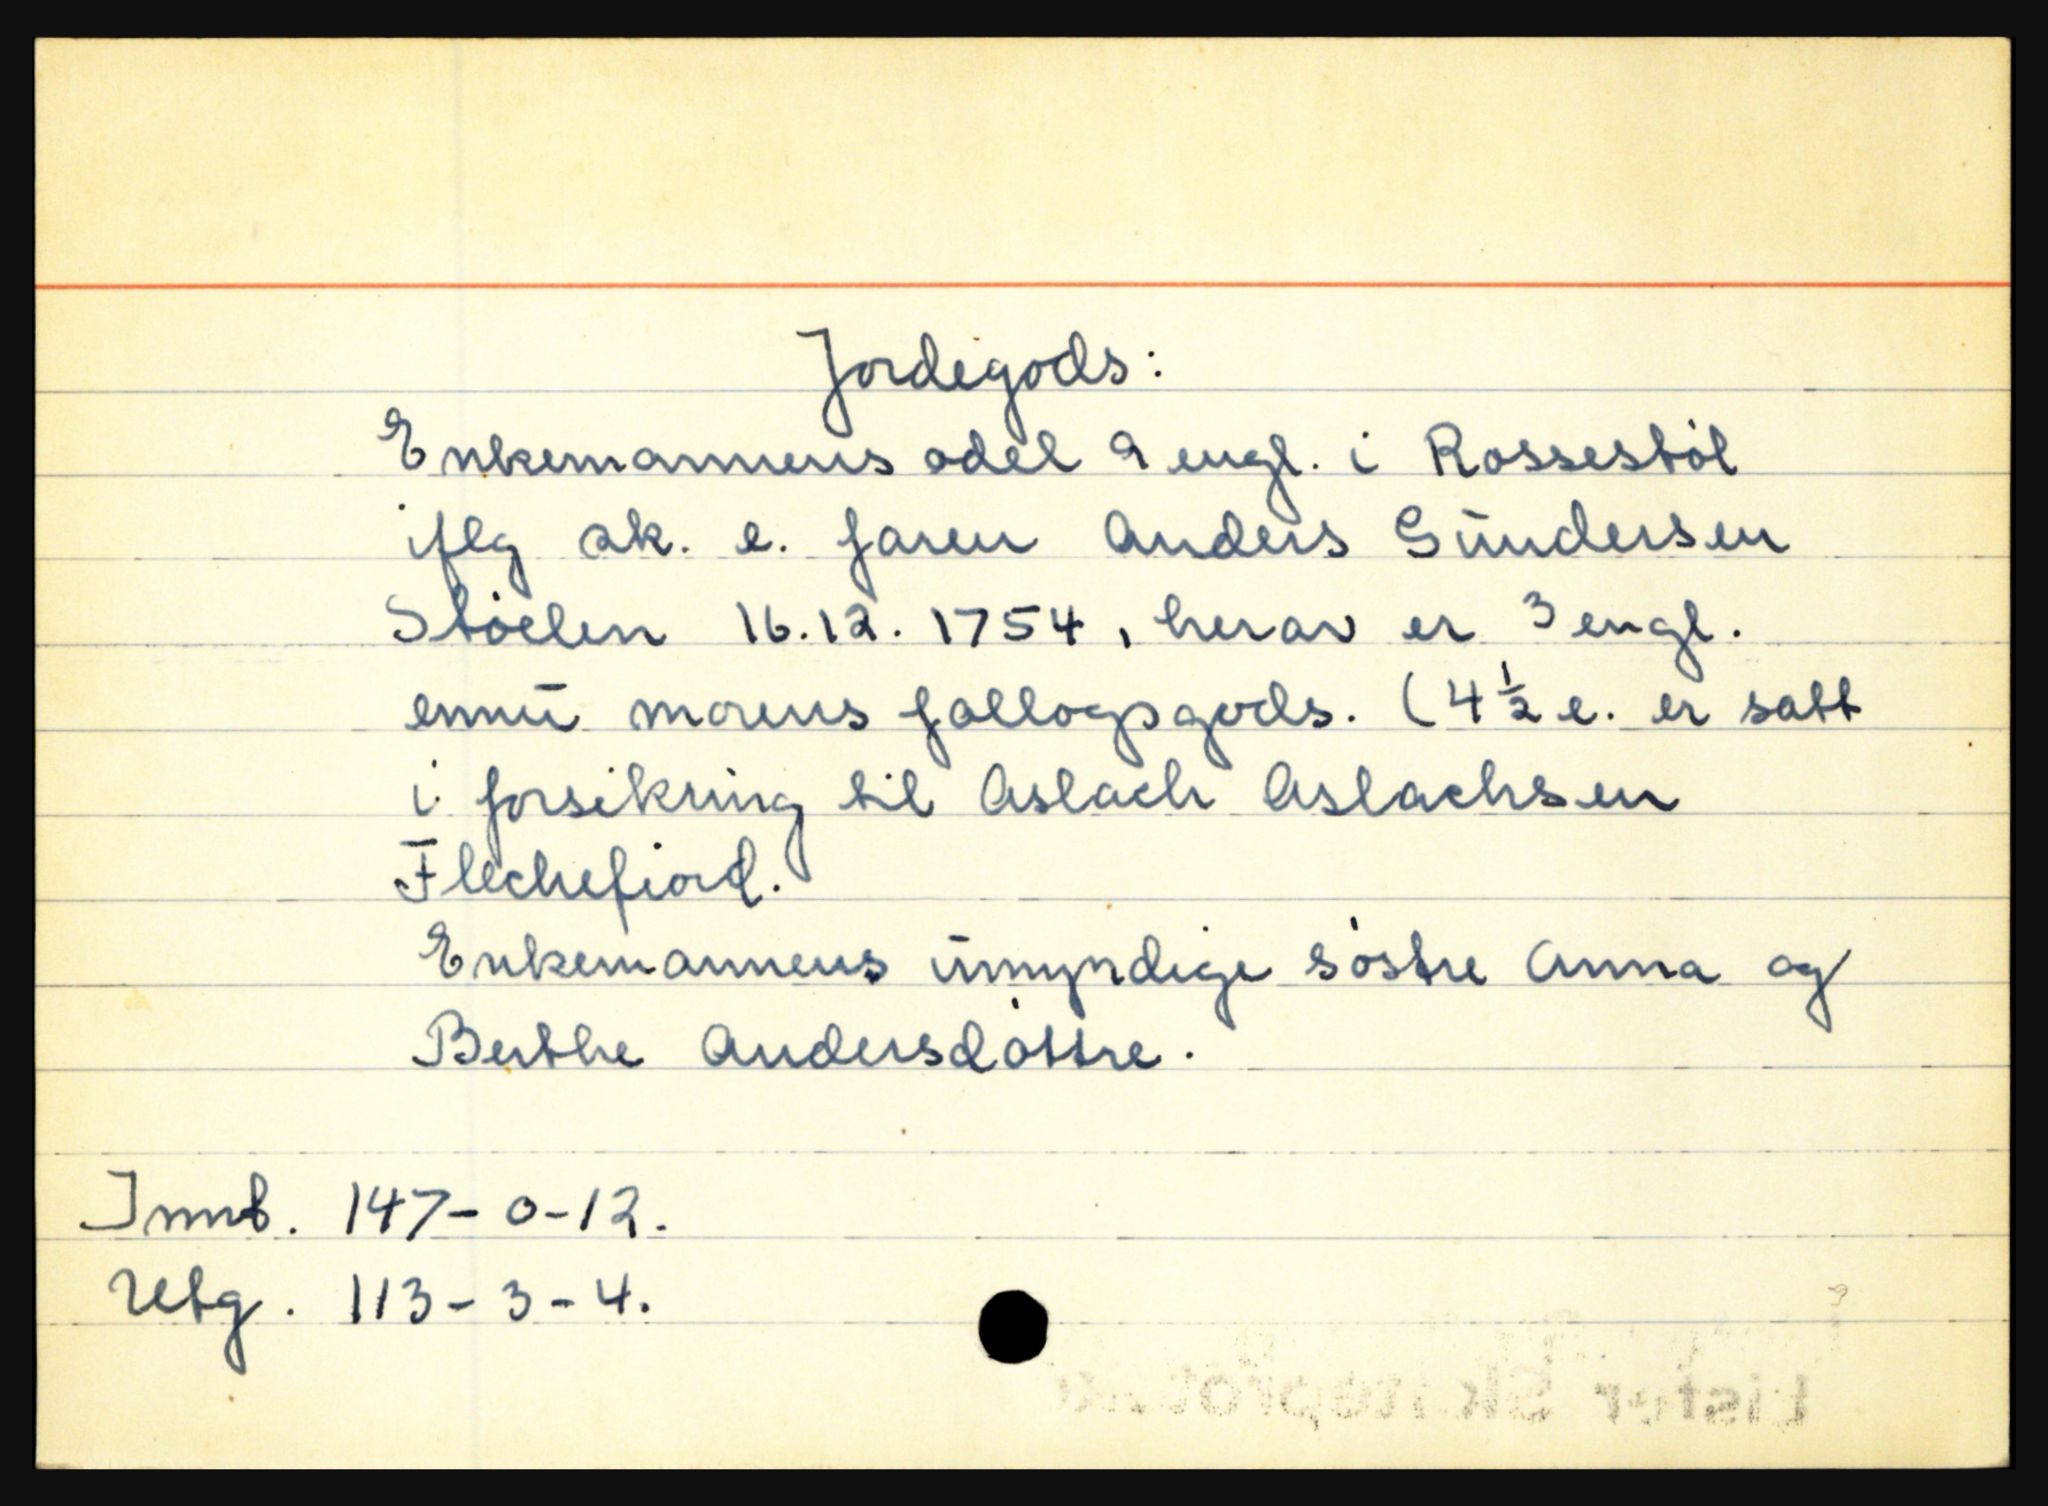 Jordegods:
Enkemannens odel 9 engl. i Rossestøl
iflg sk. e. faren Anders Gundersen
Støelen 16.12.1754, herav er 3 engl.
ennu morens fallogsgods. (4 1/2 e. er satt
i forsikring til Aslach Aslachsen
Flechefiord.
Enkemannens umyndige søstre Anna og
Berthe Andersdøttre.
Innb. 147-0-12.
Utg. 113-3-4.